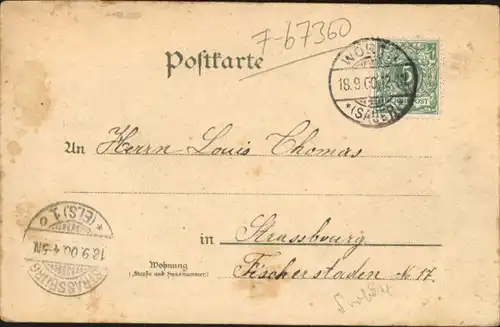 7-67360
Postkarte
WÖRTH
18.9.00.12-1N
*(SAUER)*
An Herrn Louis Thomas
in Strassbourg
Wohnung
(Straße und Hausnummer)
Fischerstaden № 17.
STRASSBURG
18.9.00.4-5N
*(ELS) 1 c